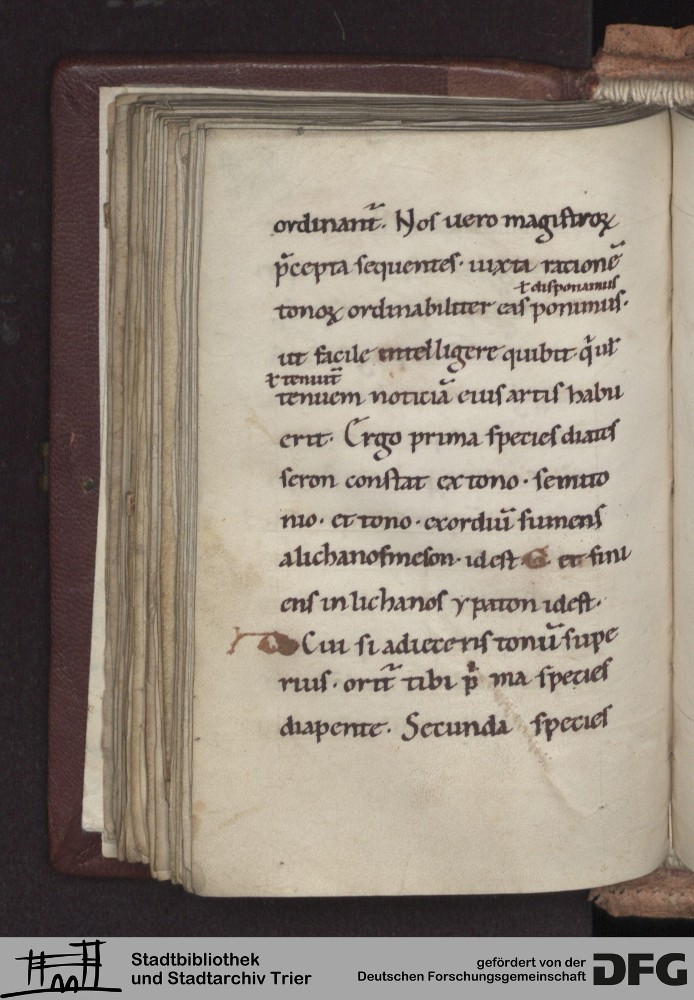 ordinant̄. Nos uero magistroꝝ
p̄cepta sequentes· iuxta racionē
ł disponamus
tonoꝝ ordinabiliter eas ponimus·
ut facile intelligere quibit q̄ uł
ł tenuit̄
tenuem noticiā eius artis habu
erit. Ergo prima species diates
seron constat ex tono· semito
nio· et tono· exordiū sumens
alichanosmeson· idest G et fini
ens in lichanos ypaton idest·
Cui si adieceris tonū supe
rius· orit̄ tibi p̄ma species
diapente. Secunda species
Stadtbibliothek
und Stadtarchiv Trier
gefördert von der
Deutschen Forschungsgemeinschaft
DFG